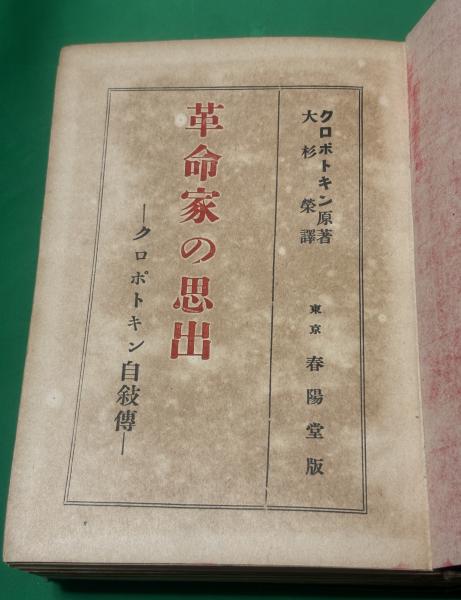 クロポトキン原著
大杉榮譯
東京 春陽堂版
革命家の思出
―クロポトキン自敍傳―